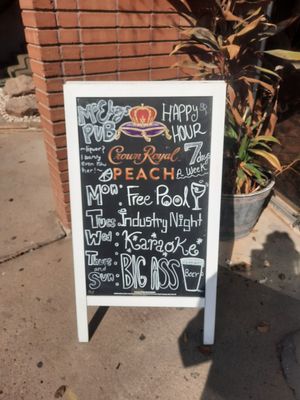 McFly's HAPPY
PUB HOUR
Crown Royal 7 days
PEACH A Week
Mon: Free Pool
Tues: Industry Night
Wed: Karaoke
Thurs:
and BIG ASS
Sun: Beer